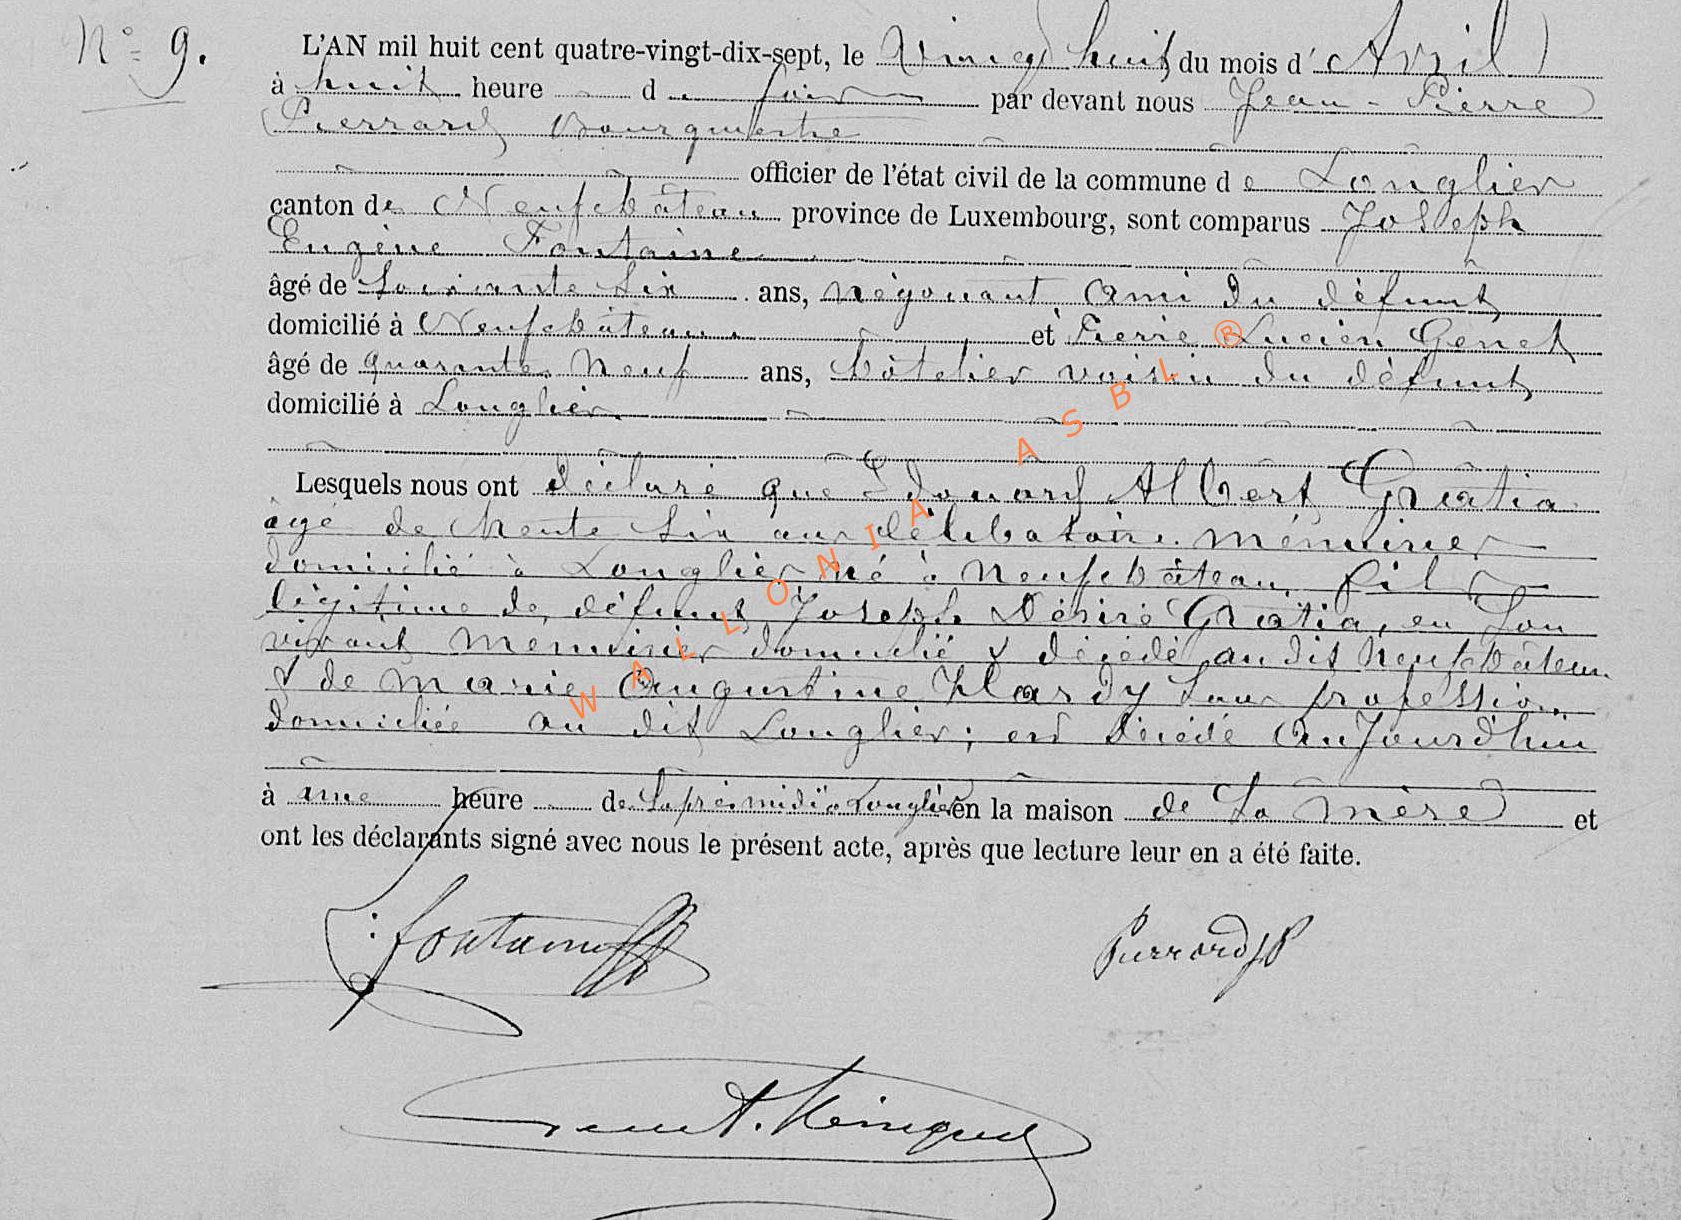 N° 9.
L'AN mil huit cent quatre-vingt-dix-sept, le Vingt huit du mois d' Avril
à huit heure d u soir par devant nous Jean-Pierre
Pierrard Bourgmestre
officier de l'état civil de la commune d e Longlier
canton de Neufchâteau province de Luxembourg, sont comparus Joseph
Eugène Fontaine
âgé de Soixante six ans, négociant ami du défunt
domicilié à Neufchâteau et Pierre Lucien Genet
âgé de quarante neuf ans, hôtelier voisin du défunt
domicilié à Longlier
Lesquels nous ont déclaré que Edouard Albert Gratia
âgé de trente six ans célibataire menuisier
domicilié à Longlier né à Neufchâteau, fils
légitime de défunt Joseph Désiré Gratia, en son
vivant menuisier domicilié & décédé au dit Neufchâteau
& de Marie Augustine Hardy sans profession
domiciliée au dit Longlier; est décédé aujourd'hui
à une heure de l'après midi à Longlier en la maison de sa mère et
ont les déclarants signé avec nous le présent acte, après que lecture leur en a été faite.
J: fontaine
Pierrard JP
WALLONIA ASBL ®